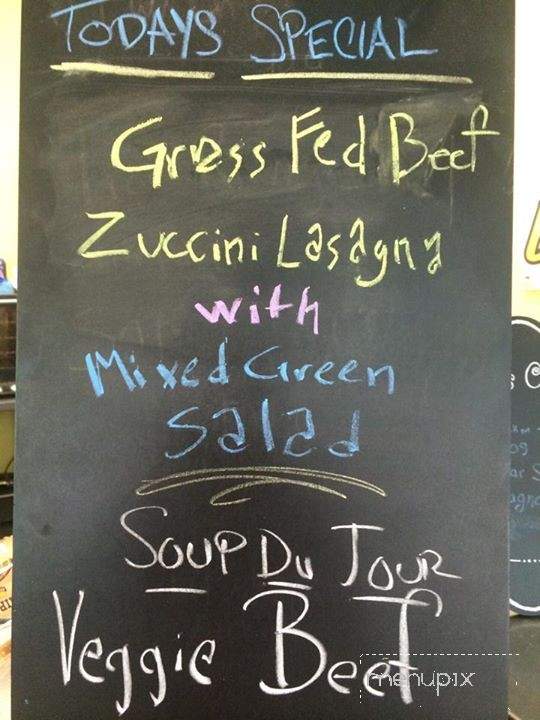 TODAYS SPECIAL
Grass Fed Beef
Zuccini Lasagna
with
Mixed Green
Salad
SOUP DU JOUR
Veggie Beef
menupix